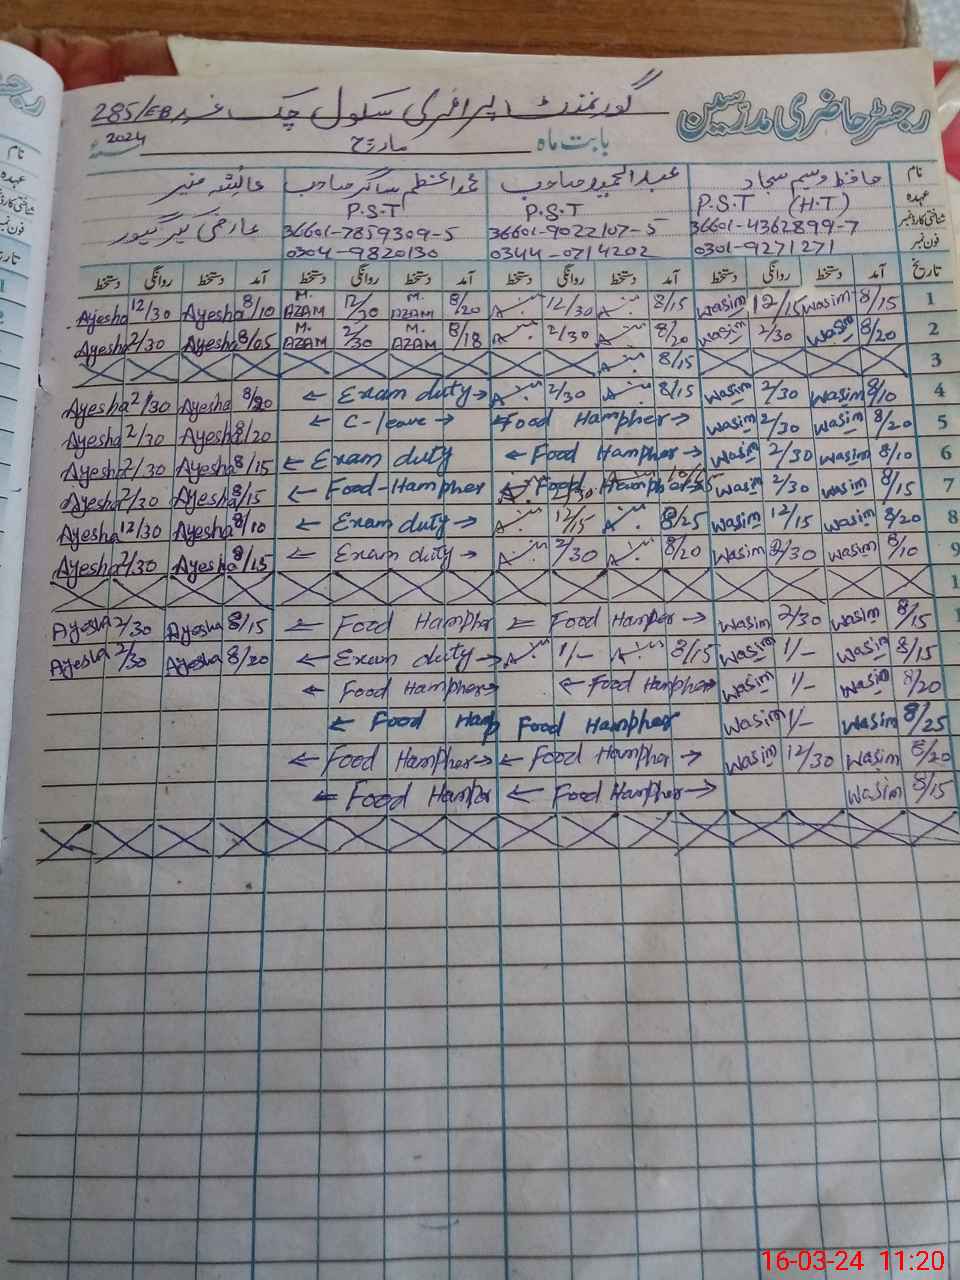 گورنمنٹ پرائمری سکول چک نمبر 285/EB
رجسٹر حاضری مدرسین
بابت ماہ مارچ 2024
نام حافظ وسیم سجاد عبدالحمید صاحب محمد اعظم ساگر صاحب عائشہ منیر
عہدہ P.S.T (H.T) P.S.T P.S.T عارضی کیئر گیور
شناختی کارڈ نمبر 36601-4362899-7 36601-9022107-5 36601-7859309-5
فون نمبر 0301-9271271 0344-0714202 0304-9820130
تاریخ آمد دستخط روانگی دستخط آمد دستخط روانگی دستخط آمد دستخط روانگی دستخط آمد دستخط روانگی دستخط
Ayesha 12/30 Ayesha 8/10 M. AZAM 12/30 M. AZAM 8/20 12/30 8/15 Wasim 12/15 Wasim 8/15 1
Ayesha 2/30 Ayesha 8/05 M. AZAM 2/30 M. AZAM 8/18 2/30 8/20 Wasim 2/30 Wasim 8/20 2
8/15 3
Ayesha 2/30 Ayesha 8/20 ← Exam duty → 2/30 8/15 Wasim 2/30 Wasim 8/10 4
Ayesha 2/30 Ayesha 8/20 ← C-leave → ← Food Hampher → Wasim 2/30 Wasim 8/20 5
Ayesha 2/30 Ayesha 8/15 ← Exam duty ← Food Hampher → Wasim 2/30 Wasim 8/10 6
Ayesha 2/30 Ayesha 8/15 ← Food-Hampher ← Food Hampher Wasim 2/30 Wasim 8/15 7
Ayesha 12/30 Ayesha 8/10 ← Exam duty → 12/15 8/25 Wasim 12/15 Wasim 8/20 8
Ayesha 2/30 Ayesha 8/15 ← Exam duty → 2/30 8/20 Wasim 2/30 Wasim 8/10 9
1
Ayesha 2/30 Ayesha 8/15 ← Food Hamphr ← Food Hamper → Wasim 2/30 Wasim 8/15 1
Ayesha 2/30 Ayesha 8/20 ← Exam duty → 1/- 8/15 Wasim 1/- Wasim 8/15
← Food Hampher → ← Food Hampher Wasim 1/- Wasim 8/20
← Food Hamp Food Hampher Wasim 1/- Wasim 8/25
← Food Hampher → ← Food Hampher → Wasim 12/30 Wasim 8/20
← Food Hampr ← Food Hampher → Wasim 8/15
16-03-24 11:20